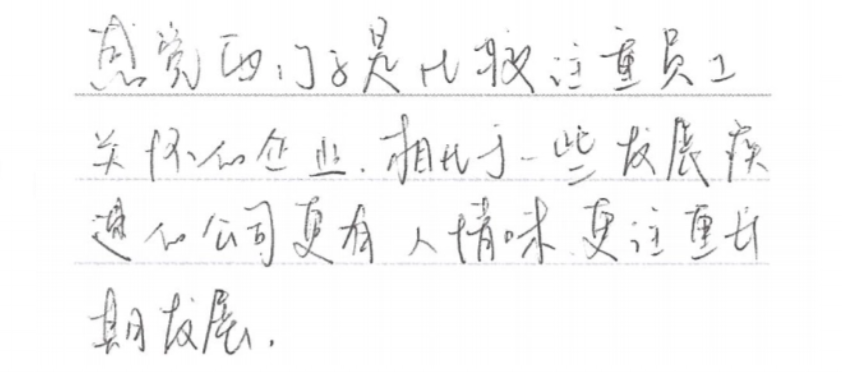 感觉西门子是比较注重员工
关怀的企业.相比于一些发展疾
速的公司更有人情味.更注重长
期发展.